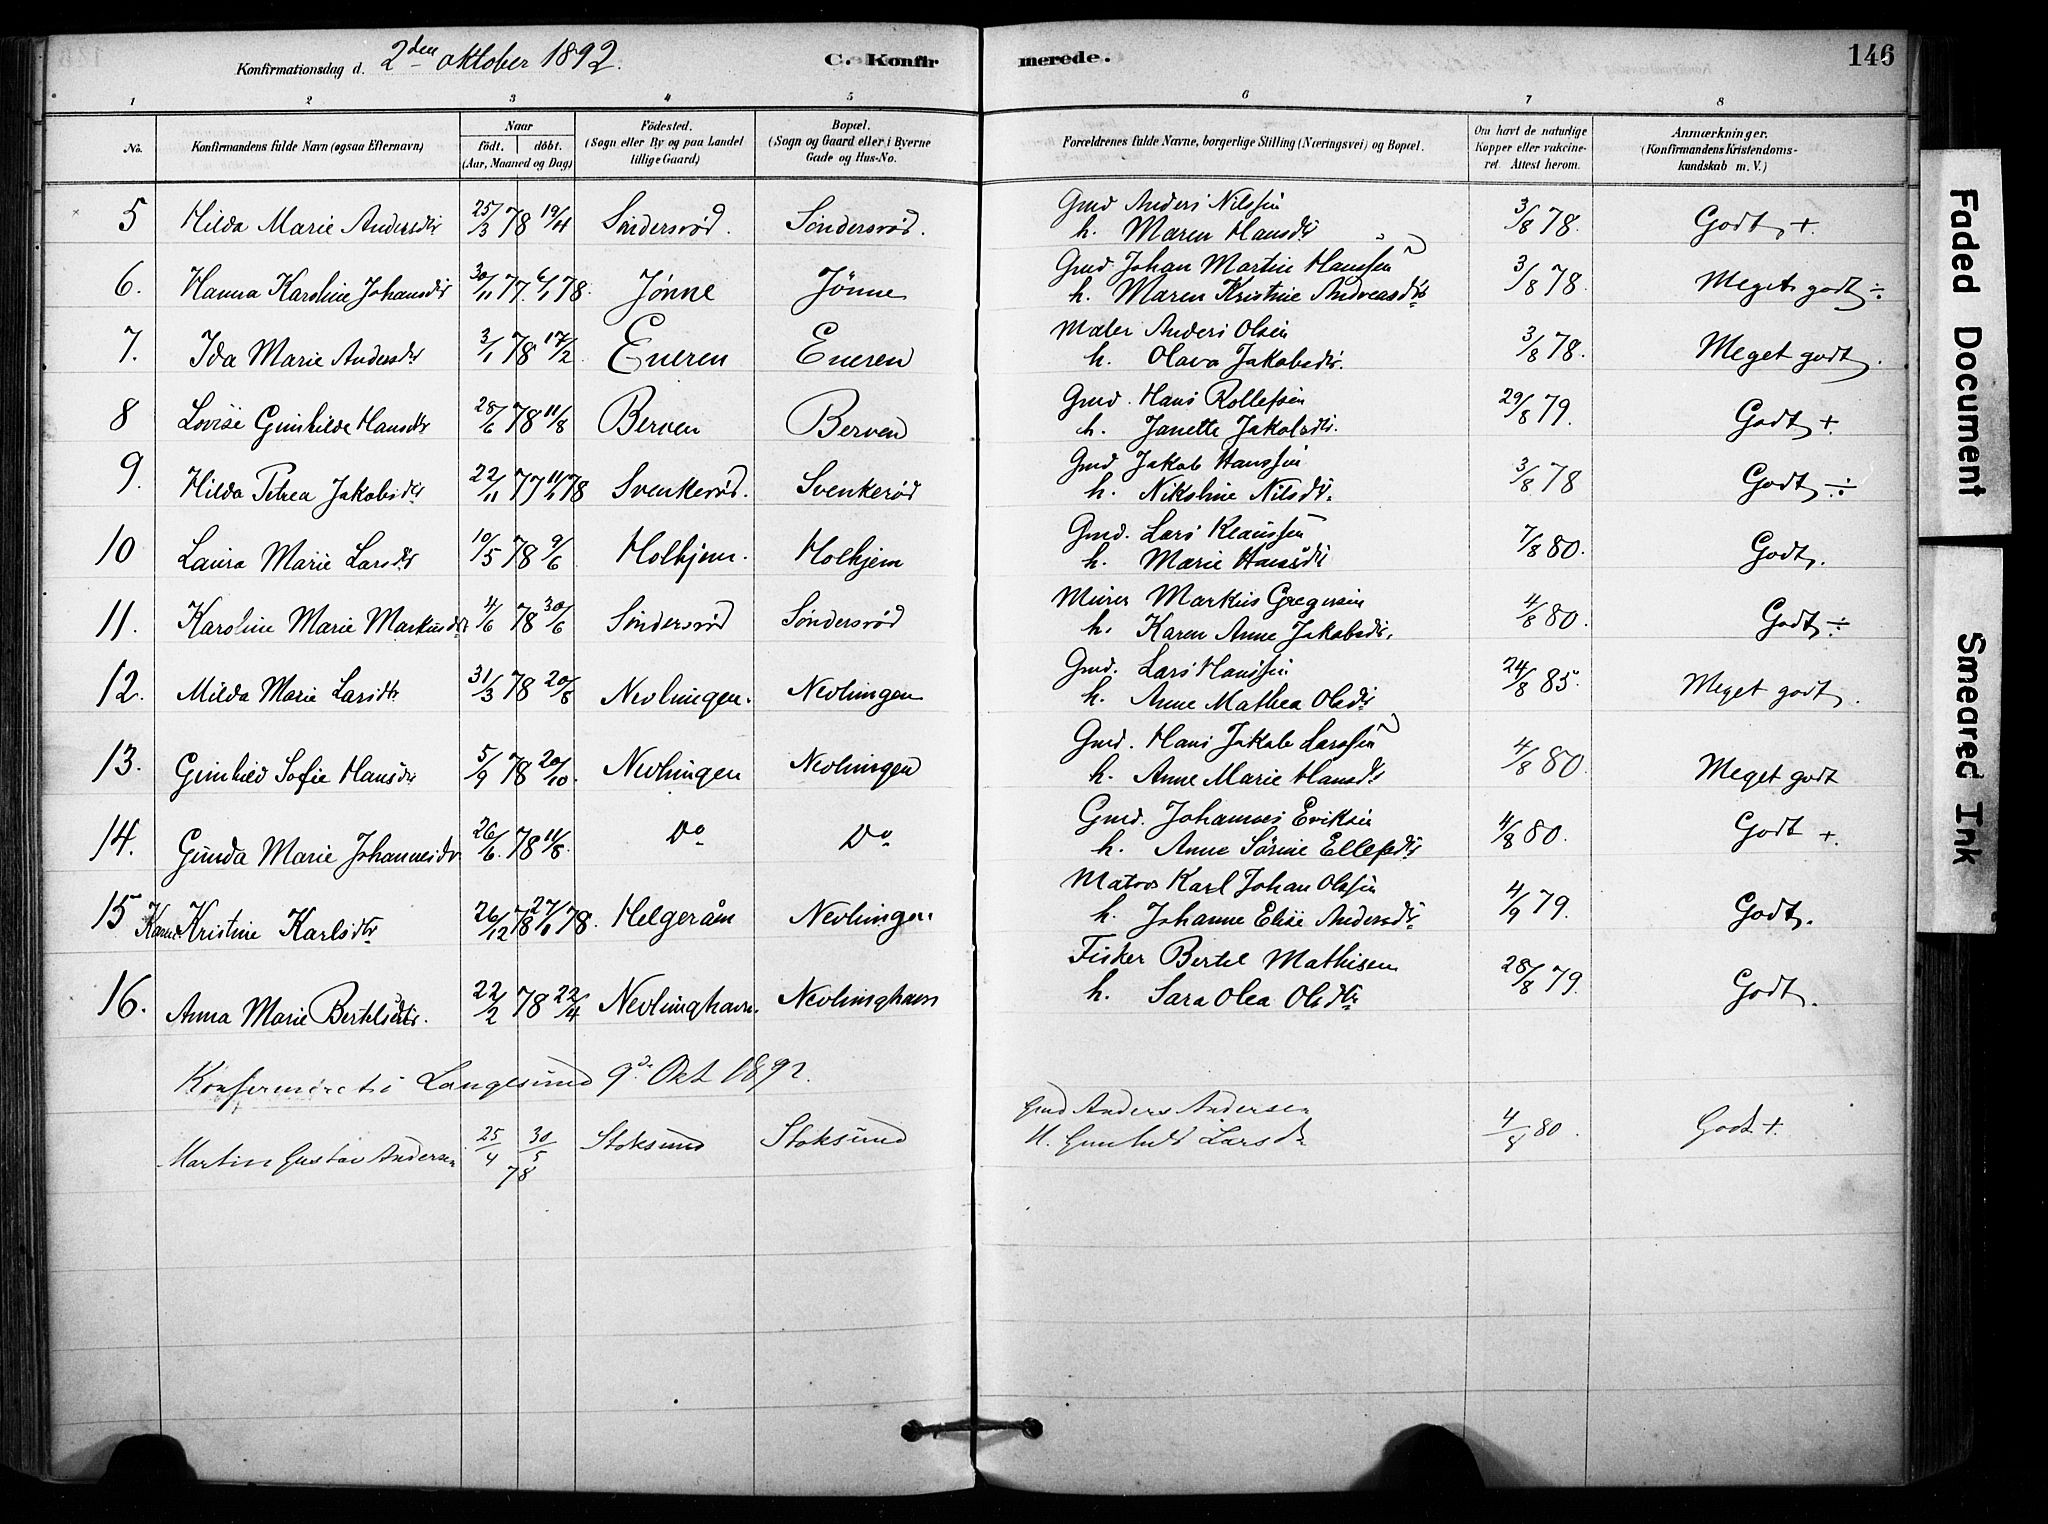 Konfirmationsdag d. 2den oktober 1892.
C. Konfir merede.
146
1 2 3 4 5 6 7 8
No. Konfirmandens fulde Navn (ogsaa Efternavn) Naar født. døbt. (Aar, Maaned og Dag) Födested. (Sogn eller By og paa Landet tillige Gaard) Bopæl. (Sogn og Gaard eller i Byerne Gade og Hus-No. Forældrenes fulde Navne, borgerlige Stilling (Næringsvei) og Bopæl. Om havt de naturlige Kopper eller vakcineret. Attest herom. Anmærkninger. (Konfirmandens Kristendomskundskab m. V.)
5 Hilda Marie Andersdtr 25/3 78 19/4 Söndersrød. Söndersrød. Gmd Anders Nilssen 3/8 78. Godt +.
h. Maren Hansdtr
6. Hanna Karoline Johansdtr 30/11 77. 6/1 78. Jönne Jönne Gmd. Johan Martin Hanssen 3/8 78. Meget godt ÷
h. Maren Kristine Andreasdtr
7. Ida Marie Andersdtr 3/1 78 17/2 Eneren Eneren Maler Anders Olsen 3/8 78. Meget godt.
h. Olava Jakobsdtr.
8 Lovise Gunhilde Hansdtr 28/6 78 11/8 Berven Berven Gmd. Hans Rollefsen 29/8 79. Godt +
h. Janette Jakobsdtr.
9. Hilda Petrea Jakobsdtr 22/11 77 11/1 78 Svenkerød. Svenkerød Gmd Jakob Hanssen 3/8 78 Godt ÷
h. Nikoline Nilsdtr.
10 Laura Marie Larsdtr 10/5 78 9/6 Holkjem. Holkjem Gmd. Lars Klaussen 7/8 80. Godt.
h. Marie Hansdtr
11. Karoline Marie Markusdtr 4/6 78 30/6 Söndersrød Söndersrød Murer Markus Gregersen 4/8 80. Godt ÷
h. Karen Anne Jakobsdtr.
12. Milda Marie Larsdtr 31/3 78 20/8 Nevlungen. Nevlungen Gmd. Lars Hanssen 24/8 85. Meget godt.
h. Anne Mathea Olsdtr
13. Gunhild Sofie Hansdtr 5/9 78 20/10. Nevlungen Nevlungen Gmd. Hans Jakob Larssen 4/8 80. Meget godt
h. Anne Marie Hansdtr
14. Gunda Marie Johannesdtr 26/6. 78 11/8. Do Do Gmd. Johannes Eriksen 4/8 80. Godt +.
h. Anne Sörine Ellefsdtr
15 Karen Kristine Karlsdtr 26/12 78 27/1 78. Helgeråen Nevlungen Matros Karl Johan Olssen 4/9 79. Godt.
h. Johanne Elise Andersdtr
16. Anna Marie Bertelsdtr. 22/2 78 22/4 Nevlunghavn. Nevlunghavn Fisker Bertel Mathisen 28/8 79. Godt.
h. Sara Olea Olsdtr
Konfermeret i Langesund 9de Okt 1892.
Martin Gustav Andersen 25/4 30/5 78 Stoksund Stoksund Gmd Anders Andersen 4/8 80. Godt +.
H. Gunhild Larsdtr
Faded Document
Smeared Ink